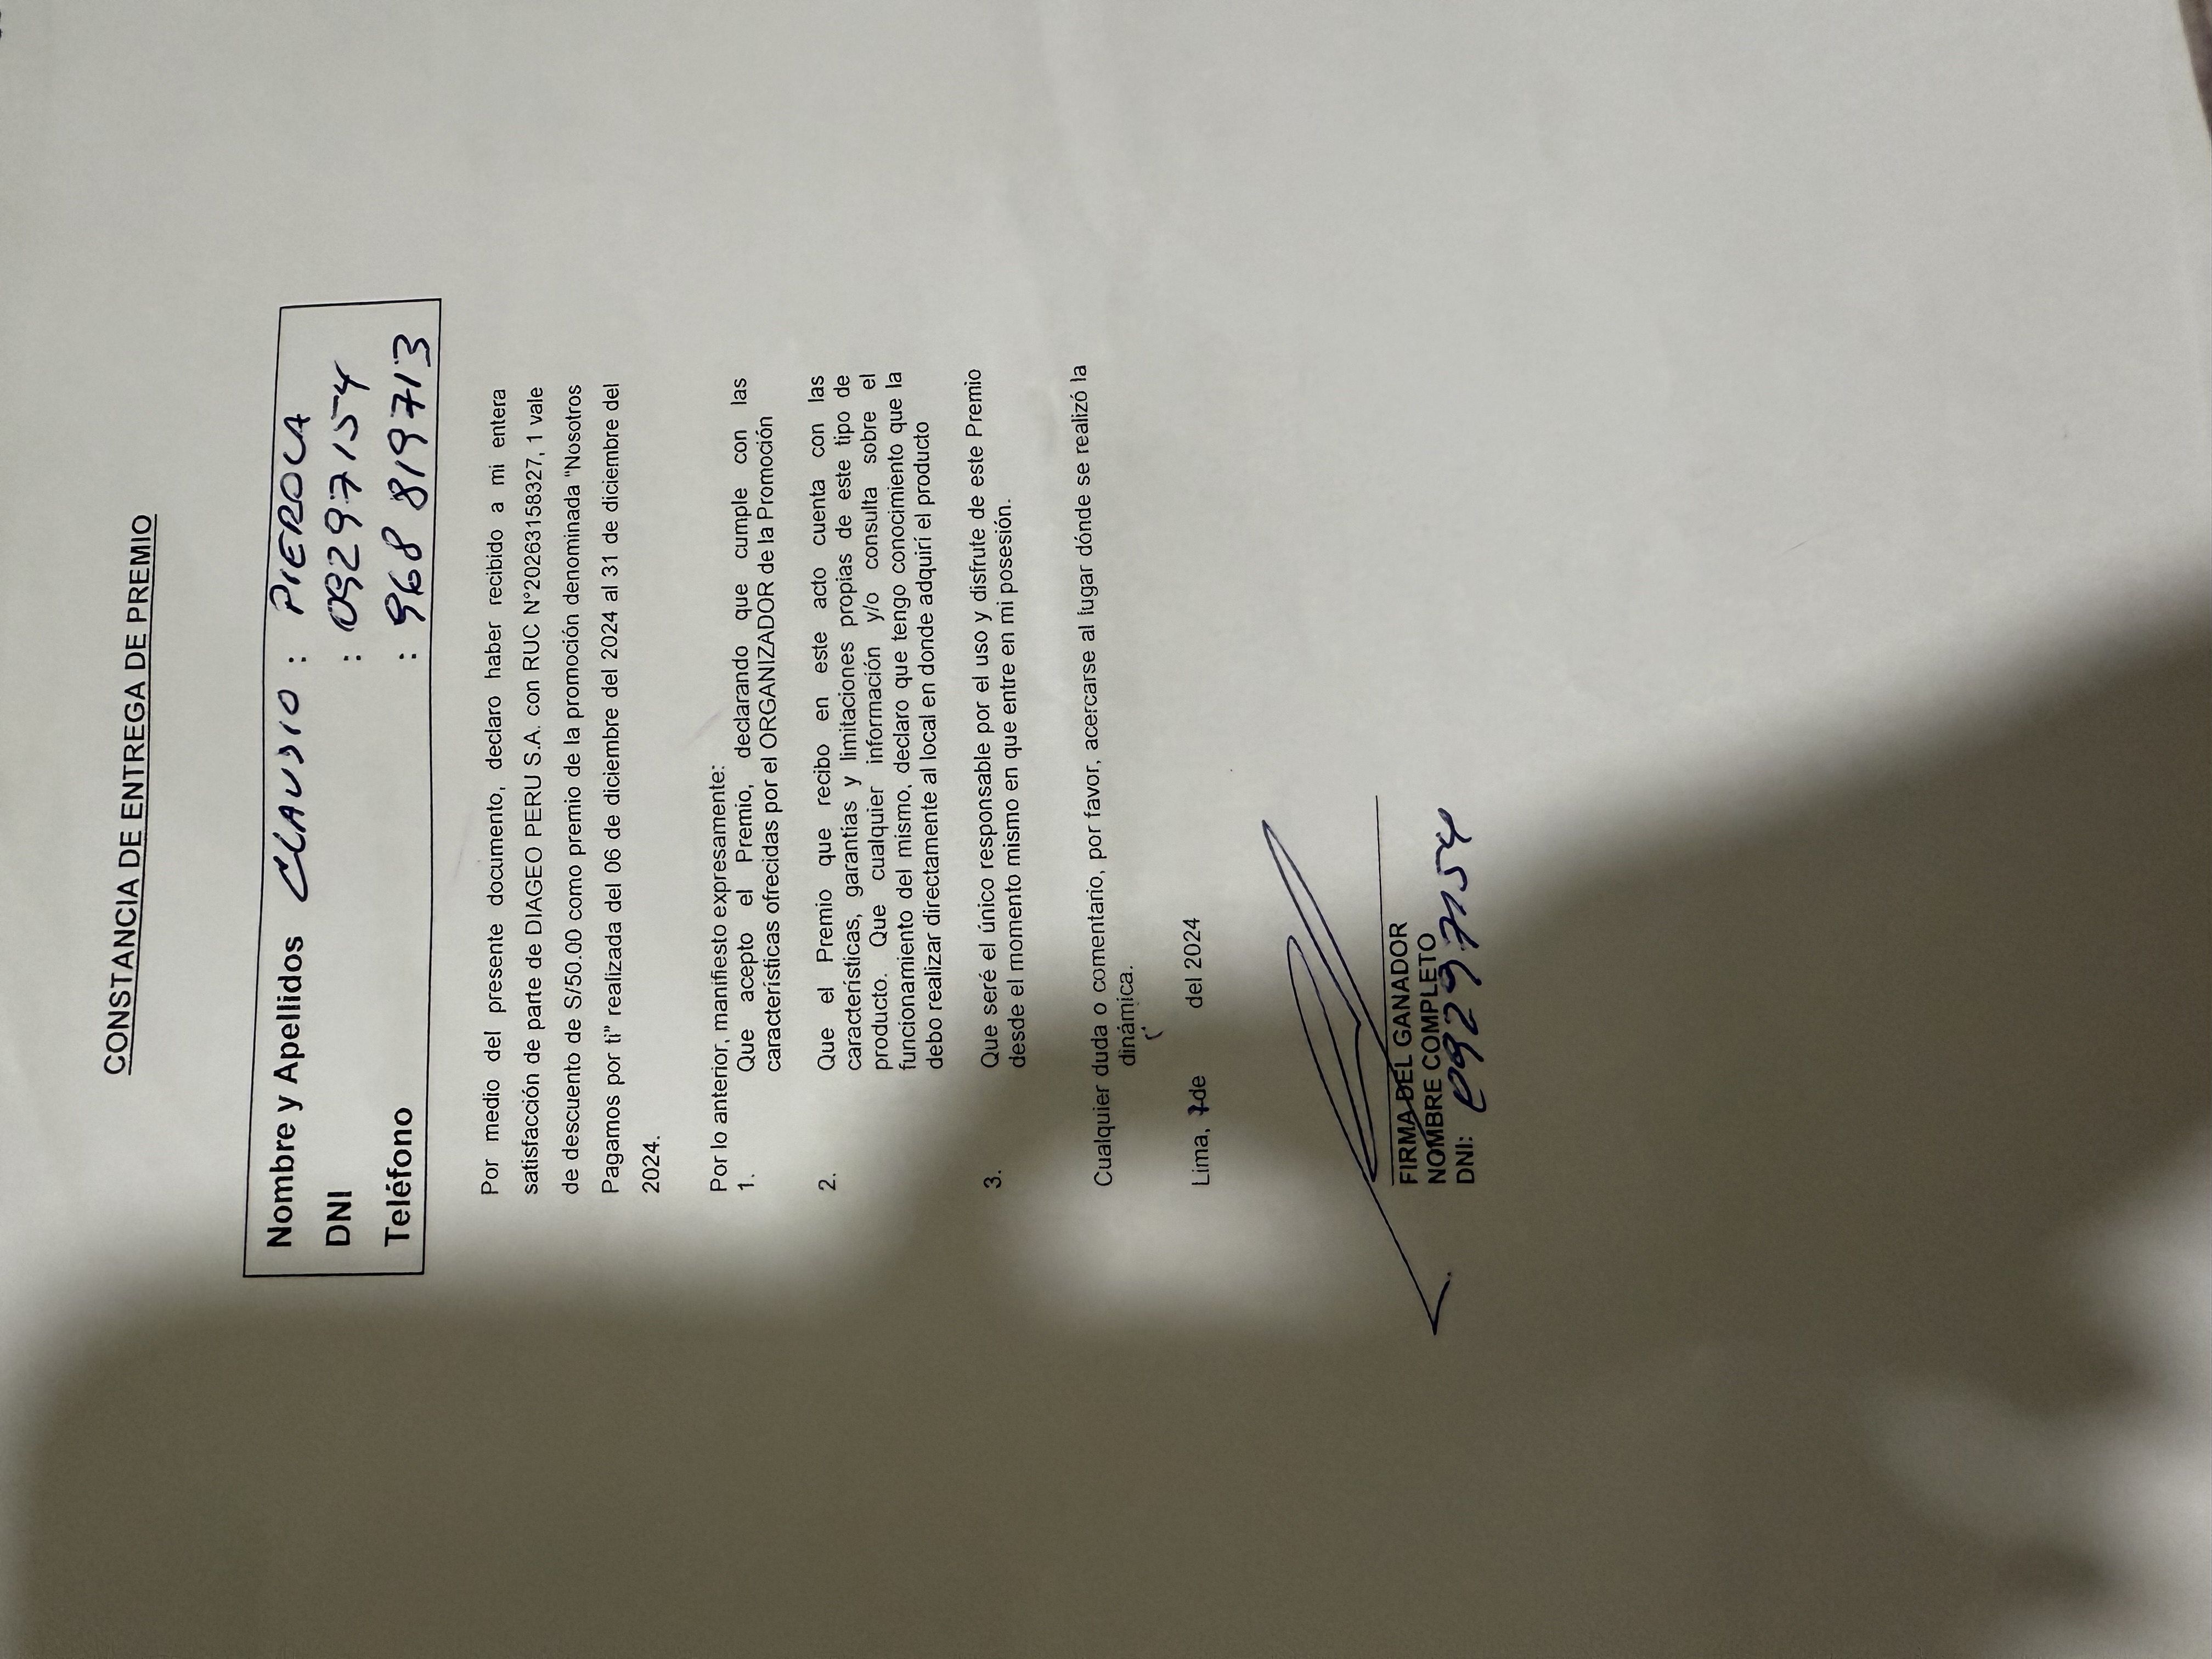 CONSTANCIA DE ENTREGA DE PREMIO
Nombre y Apellidos CLAUDIO : PIEROLA
DNI : 09297154
Teléfono : 968 819713
Por medio del presente documento, declaro haber recibido a mi entera
satisfacción de parte de DIAGEO PERU S.A. con RUC N°20263158327, 1 vale
de descuento de S/50.00 como premio de la promoción denominada “Nosotros
Pagamos por ti” realizada del 06 de diciembre del 2024 al 31 de diciembre del
2024.
Por lo anterior, manifiesto expresamente:
1. Que acepto el Premio, declarando que cumple con las
características ofrecidas por el ORGANIZADOR de la Promoción
2. Que el Premio que recibo en este acto cuenta con las
características, garantías y limitaciones propias de este tipo de
producto. Que cualquier información y/o consulta sobre el
funcionamiento del mismo, declaro que tengo conocimiento que la
debo realizar directamente al local en donde adquirí el producto
3. Que seré el único responsable por el uso y disfrute de este Premio
desde el momento mismo en que entre en mi posesión.
Cualquier duda o comentario, por favor, acercarse al lugar dónde se realizó la
dinámica.
Lima, 7 de del 2024
FIRMA DEL GANADOR
NOMBRE COMPLETO
DNI: 09297154